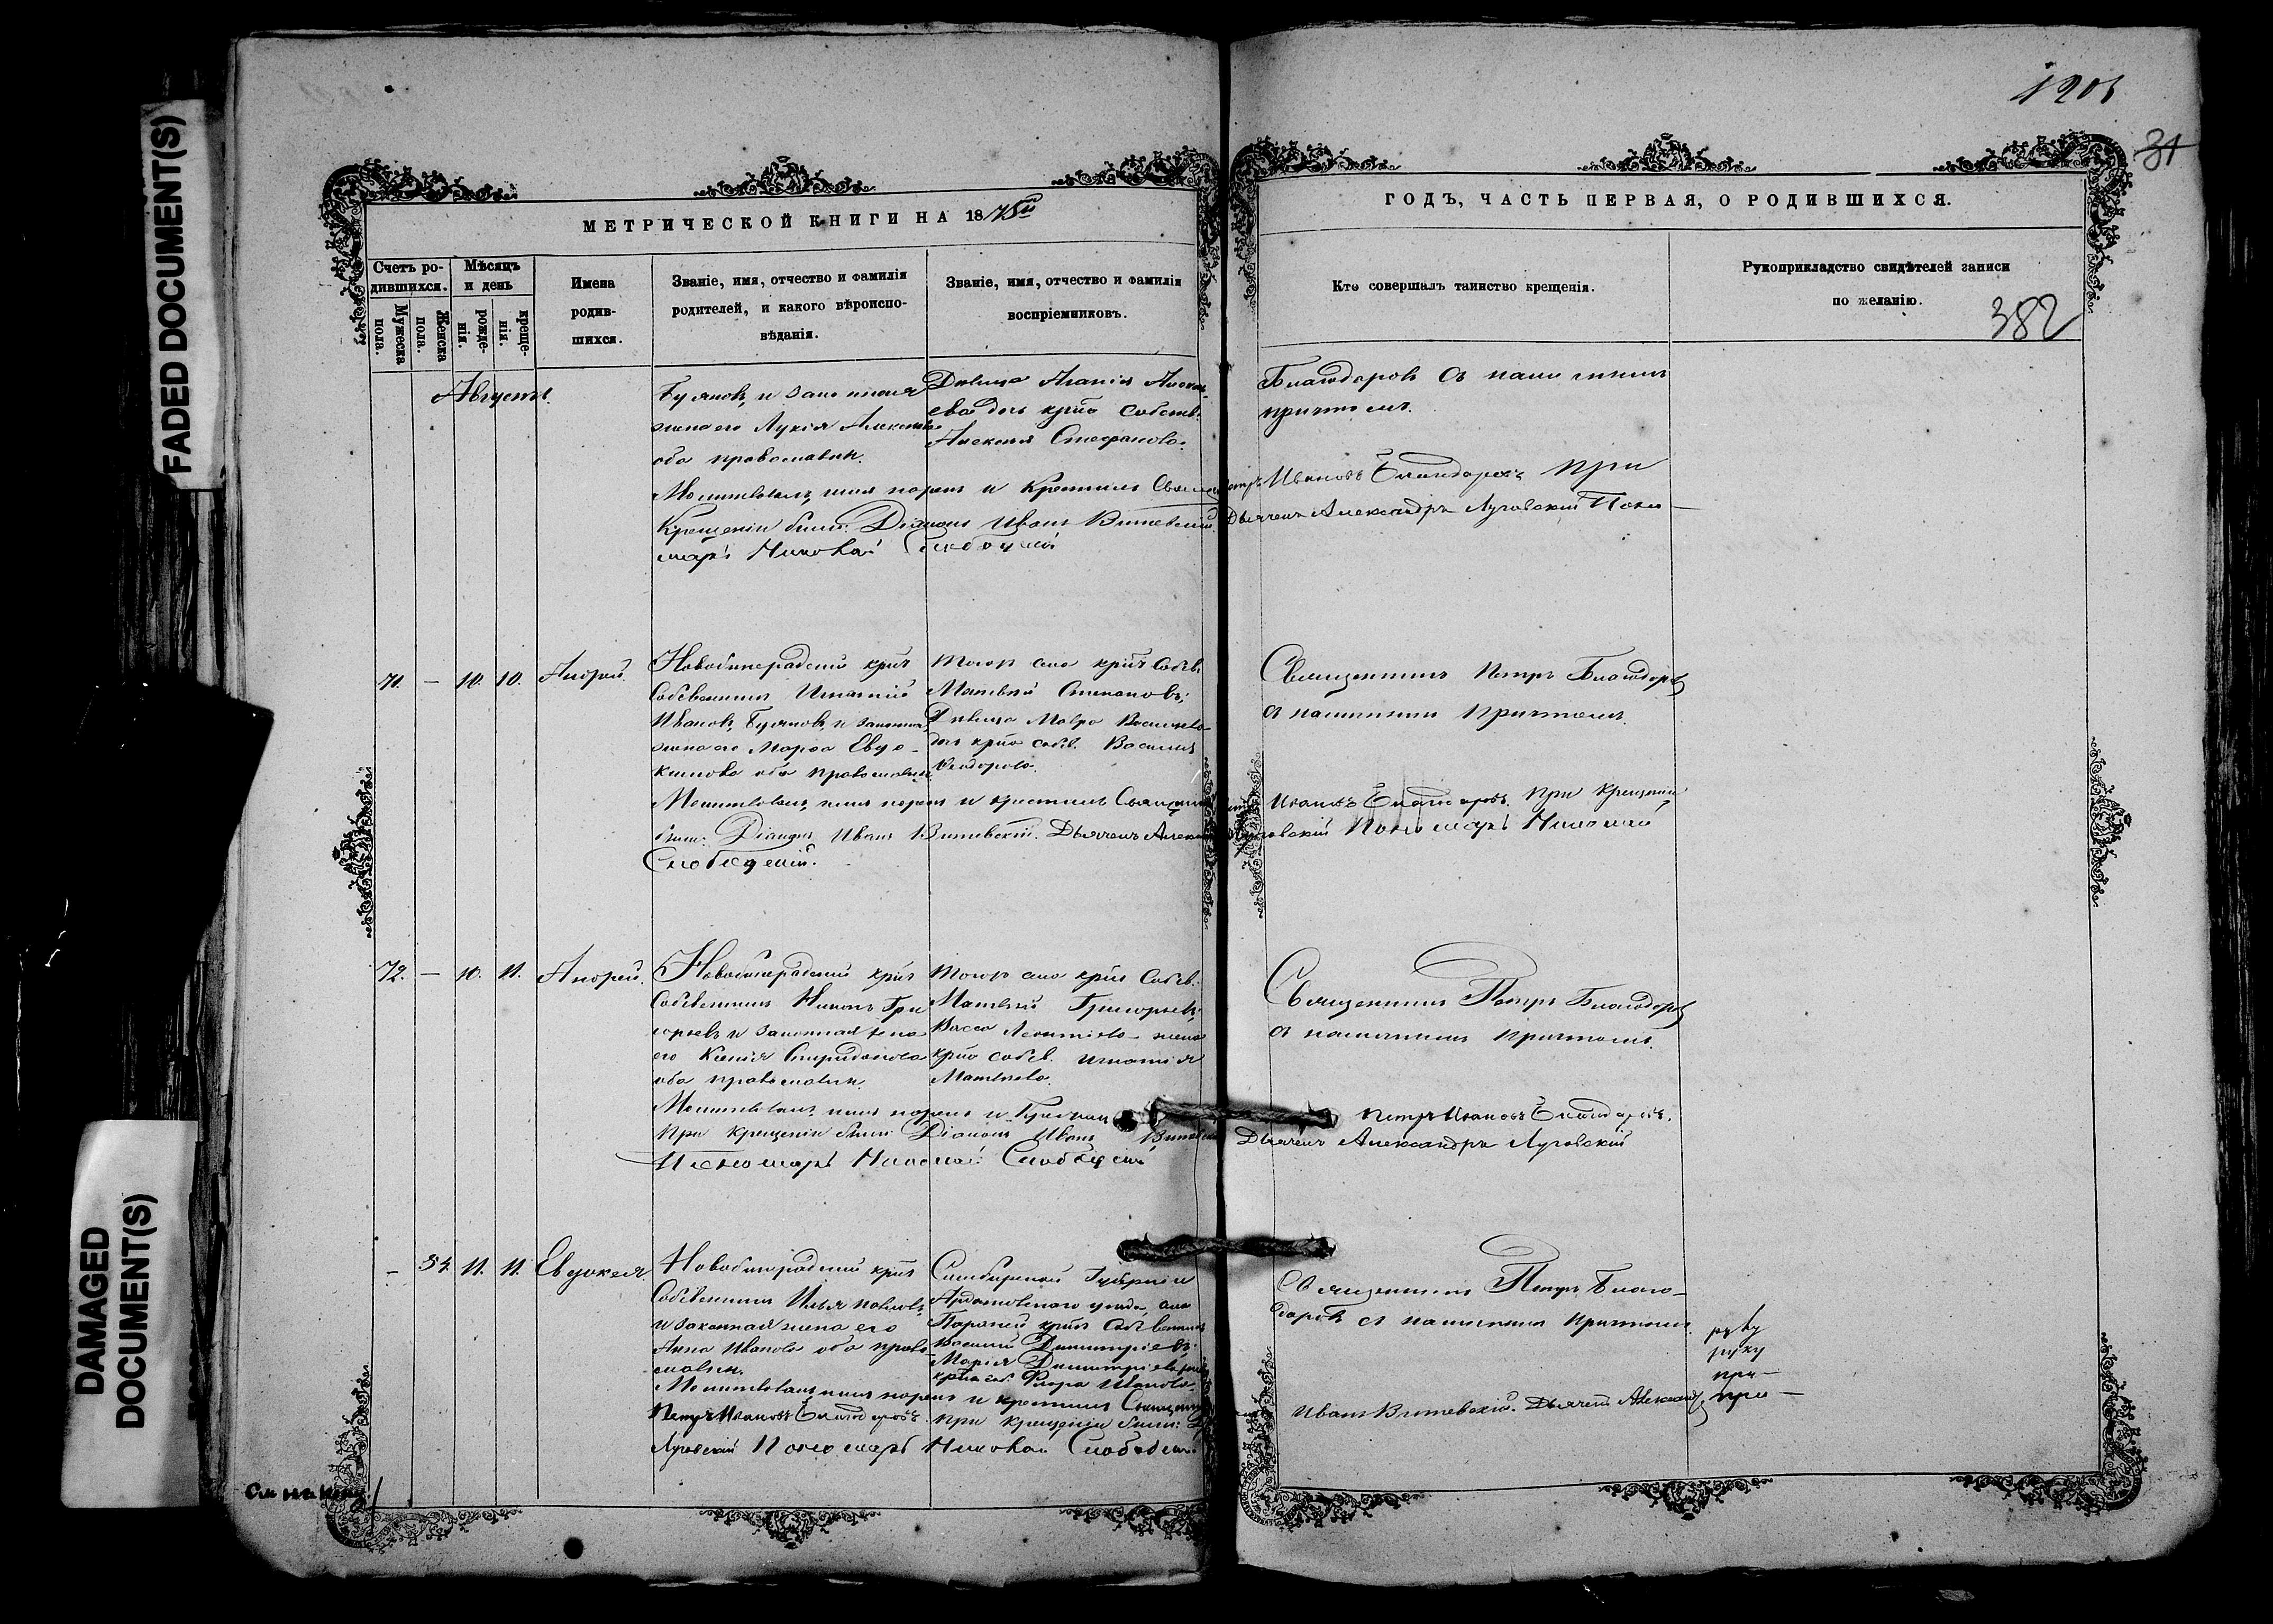 FADED DOCUMENT(S)
DAMAGED DOCUMENT(S)
1206
31
382
МЕТРИЧЕСКОЙ КНИГИ НА 1875й
ГОДЪ, ЧАСТЬ ПЕРВАЯ, О РОДИВШИХСЯ.
Счетъ ро-
дившихся.
Мужеска пола.
Женска пола.
Мѣсяцъ
и день
рожде-
нія.
креще-
нія.
Имена
родив-
шихся.
Званіе, имя, отчество и фамилія
родителей, и какого вѣроиспо-
вѣданія.
Званіе, имя, отчество и фамилія
воспріемниковъ.
Кто совершалъ таинство крещенія.
Рукоприкладство свидѣтелей записи
по желанію.
Августъ.
Буяновъ, и законная
жена его Лукія Алексѣева
оба православн.
Дѣвица Агапія Алексѣ-
ева дочь крна собств.
Алексѣя Стефанова.
Благодаровъ съ нашимъ
причтомъ.
Молитвовалъ, имя нарекъ и крестилъ Священ Петръ Ивановъ Благодаровъ при
Крещеніи были: Діаконъ Иванъ Витевскій. Дьячекъ Александръ Луговскій Поно-
марь Николай Слободскій
71. — 10. 10. Андрей.
крнъ
Собственникъ Игнатій
Ивановъ Буяновъ, и законная
жена его Марѳа Евдо-
кимова оба православн.
Тогож села крнъ собств.
Матвѣй Степановъ;
Дѣвица Мавра Васильева
дочь крна собств. Василія
Ѳеодорова.
Священникъ Петръ Благодаровъ
съ нашимъ причтомъ.
Молитвовалъ, имя нарекъ и крестилъ Священник Петръ Ивановъ Благодаровъ. при крещеніи
были: Діаконъ Иванъ Витевскій. Дьячекъ Александръ Луговскій Пономарь Николай
Слободскій.
72. — 10. 11. Андрей.
крнъ
Собственникъ Никонъ Гри
горьевъ и законная жена
его Ксенія Спиридонова
оба православн.
Тогож села крнъ собств.
Матвѣй Григорьевъ;
Васса Леонтіева жена
крна собств. Игнатія
Матвѣева.
Священникъ Петръ Благодаровъ
съ нашимъ причтомъ.
Молитвовалъ, имя нарекъ и Крестилъ Петръ Ивановъ Благодаровъ.
При крещеніи были: Діаконъ Иванъ Витевскій Дьячекъ Александръ Луговскій
Пономарь Николай Слободскій
— 54. 11. 11. Евдокея
крнъ
Собственникъ Илья Павловъ,
и законная жена его
Анна Иванова оба право
славн.
Симбирской Губерніи
Ардатовскаго уѣзда, села
крнъ собственникъ
Василій Димитріевъ;
Марія Димитріева жена
крна соб. Флора Иванова.
Священникъ Петръ Благо-
даровъ съ нашимъ причтомъ.
руку
руку
при-
при-
Молитвовалъ имя нарекъ и крестилъ Священник
Петръ Ивановъ Благодаровъ при крещеніи были: Иванъ Витевскій. Дьячекъ Александръ
Луговскій Пономарь Николай Слободскій